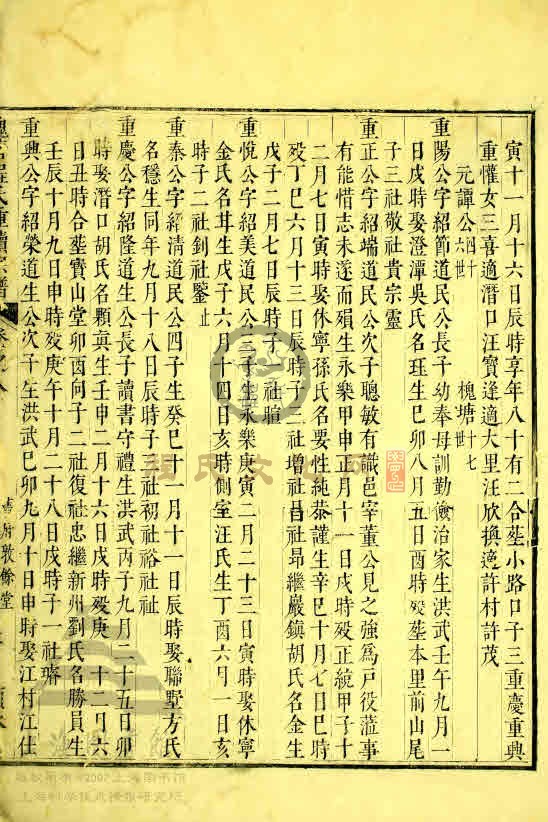 寅十一月十六日辰時享年八十有二合塟小路口子三重慶重興
重懽女三喜適潛口汪寶逢適大里汪欣換適許村許茂
元譚公四十六世 槐塘十七世
重陽公字紹節道民公長子幼奉母訓勤儉治家生洪武壬午九月一
日戌時娶澄潭吳氏名珏生己卯八月五日酉時歿塟本里前山尾
子三社敬社貴宗靈
重正公字紹端道民公次子聰敏有識邑宰董公見之強為戸役蒞事
有能惜志未遂而殞生永樂甲申正月十一日戌時歿正統甲子十
二月七日寅時娶休寧孫氏名要性純恭謹生辛巳十月七日巳時
歿丁巳六月十三日辰時子三社增社昌社昻繼巖鎮胡氏名金生
戊子二月七日辰時子一社暄
重悅公字紹美道民公三子生永樂庚寅二月二十三日寅時娶休寧
金氏名苜生戊子六月十四日亥時側室汪氏生丁酉六月一日亥
時子二社釗社鑒止
重泰公字紹清道民公四子生癸巳十一月十一日辰時娶聯墅方氏
名穩生同年九月十八日辰時子三社初社裕社祉
重慶公字紹隆道生公長子讀書守禮生洪武丙子九月二十五日卯
時娶潛口胡氏名顆眞生壬申二月十六日戌時歿庚 十二月六
日丑時合塟寶山堂卯酉向子二社復社忠繼新州劉氏名勝員生
壬辰十月九日申時歿庚午十月二十八日戌時子一社隮
重興公字紹榮道生公次子生洪武己卯九月十日申時娶江村江仕
敦餘堂
版權所有©2007上海圖書館